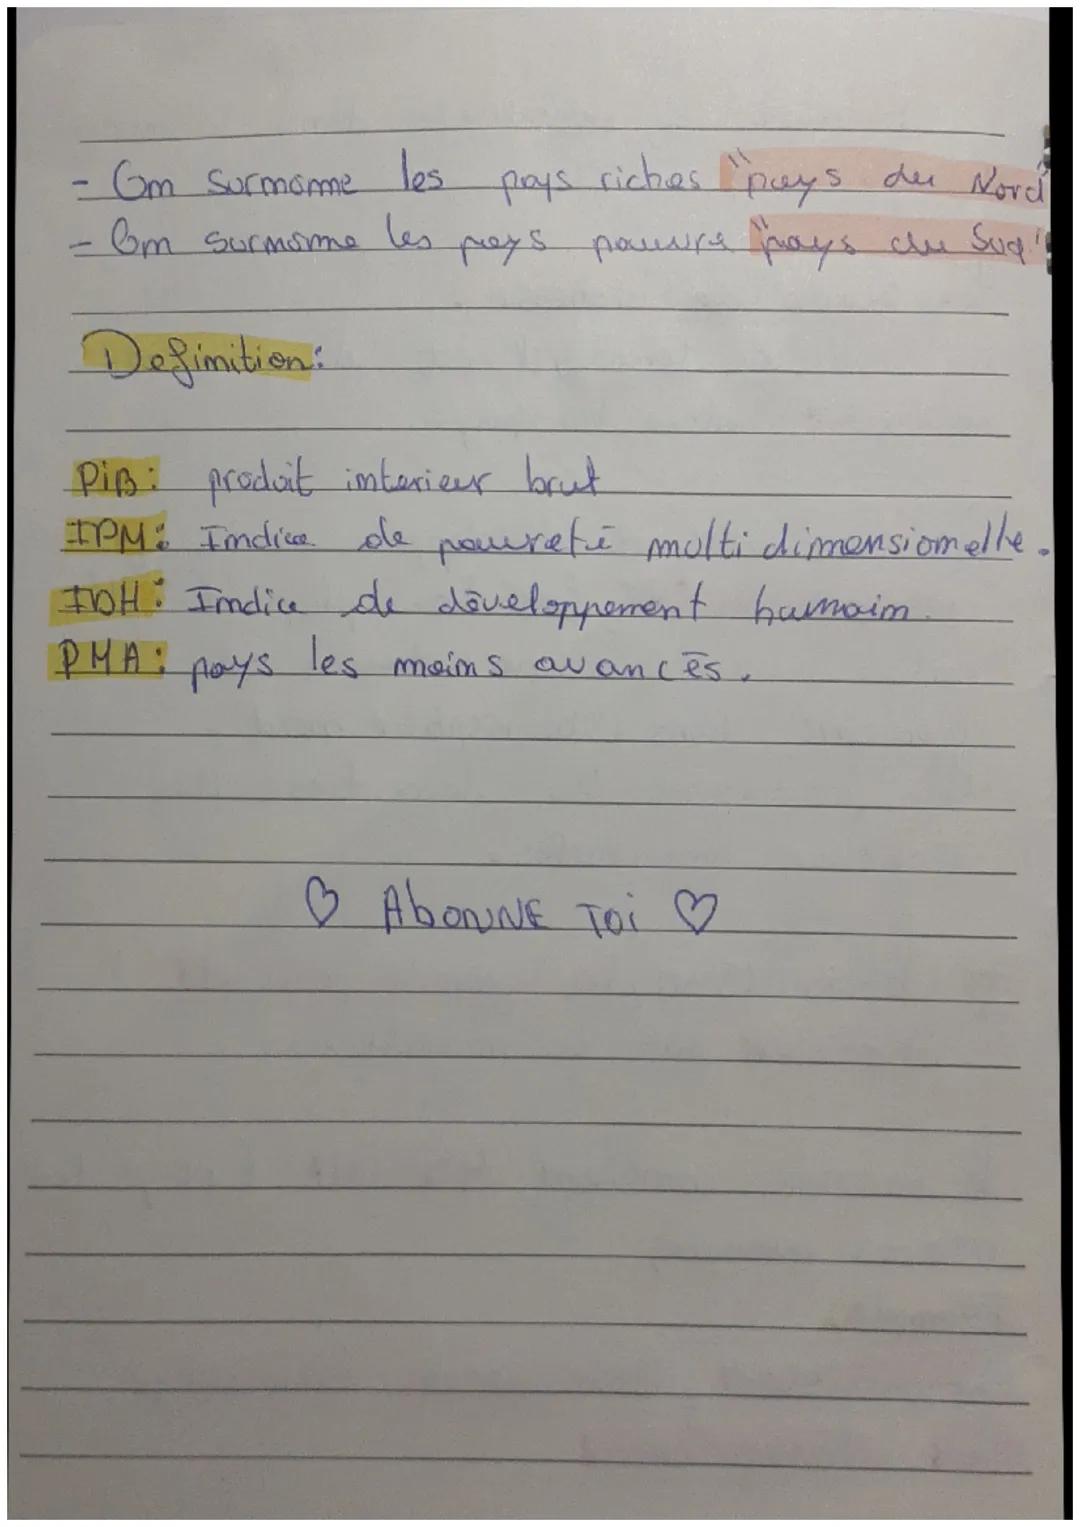 - On surnomme les pays riches "pays du Nord"
- On surnomme les pays pauvre "pays du Sud"
Definition:
PiB: produit interieur brut
IPM: Indice de pauvreté multi dimensionnelle.
IDH: Indice de développement humain.
PMA: pays les moins avancés.
♡ AbONNE TOi ♡